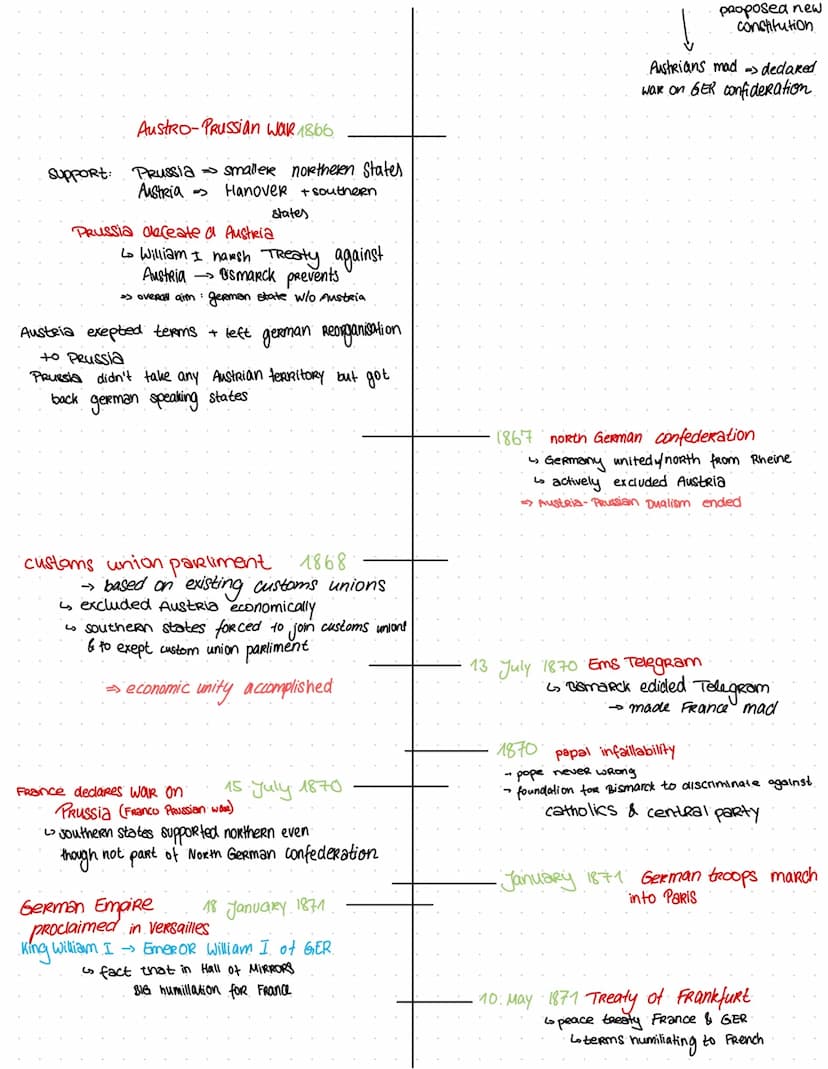 proposed new
constitution
Austrians mad => declared
war on GER confideration
Austro-Prussian war 1866
support: Prussia => smaller northern states
Austria => Hanover + southern
states
Prussia defeated Austria
↳ William I harsh Treaty against
Austria → Bismarck prevents
=> overall aim: german state w/o Austria
Austria exepted terms + left german reorganisation
to Prussia
Prussia didn't take any Austrian territory but got
back german speaking states
1867 north German confederation
↳ Germany united north from Rheine
↳ actively excluded Austria
=> Austria-Prussian Dualism ended
customs union parliment 1868
→ based on existing customs unions
↳ excluded Austria economically
↳ southern states forced to join customs unions
& to exept custom union parliment
=> economic unity accomplished
13 July 1870 Ems Telegram
↳ Bismarck edided Telegram
→ made France mad
1870 papal infaillability
→ pope never wrong
→ foundation for Bismarck to discriminate against
catholics & central party
France declares war on 15 July 1870
Prussia (Franco Prussian war)
↳ southern states supported northern even
though not part of North German confederation
January 1871 German troops march
into Paris
German Empire 18 January 1871
proclaimed in Versailles
King William I → Emeror William I. of GER
↳ fact that in Hall of Mirrors
big humillation for France
10. May 1871 Treaty of Frankfurt
↳ peace treaty France & GER
↳ terms humiliating to French